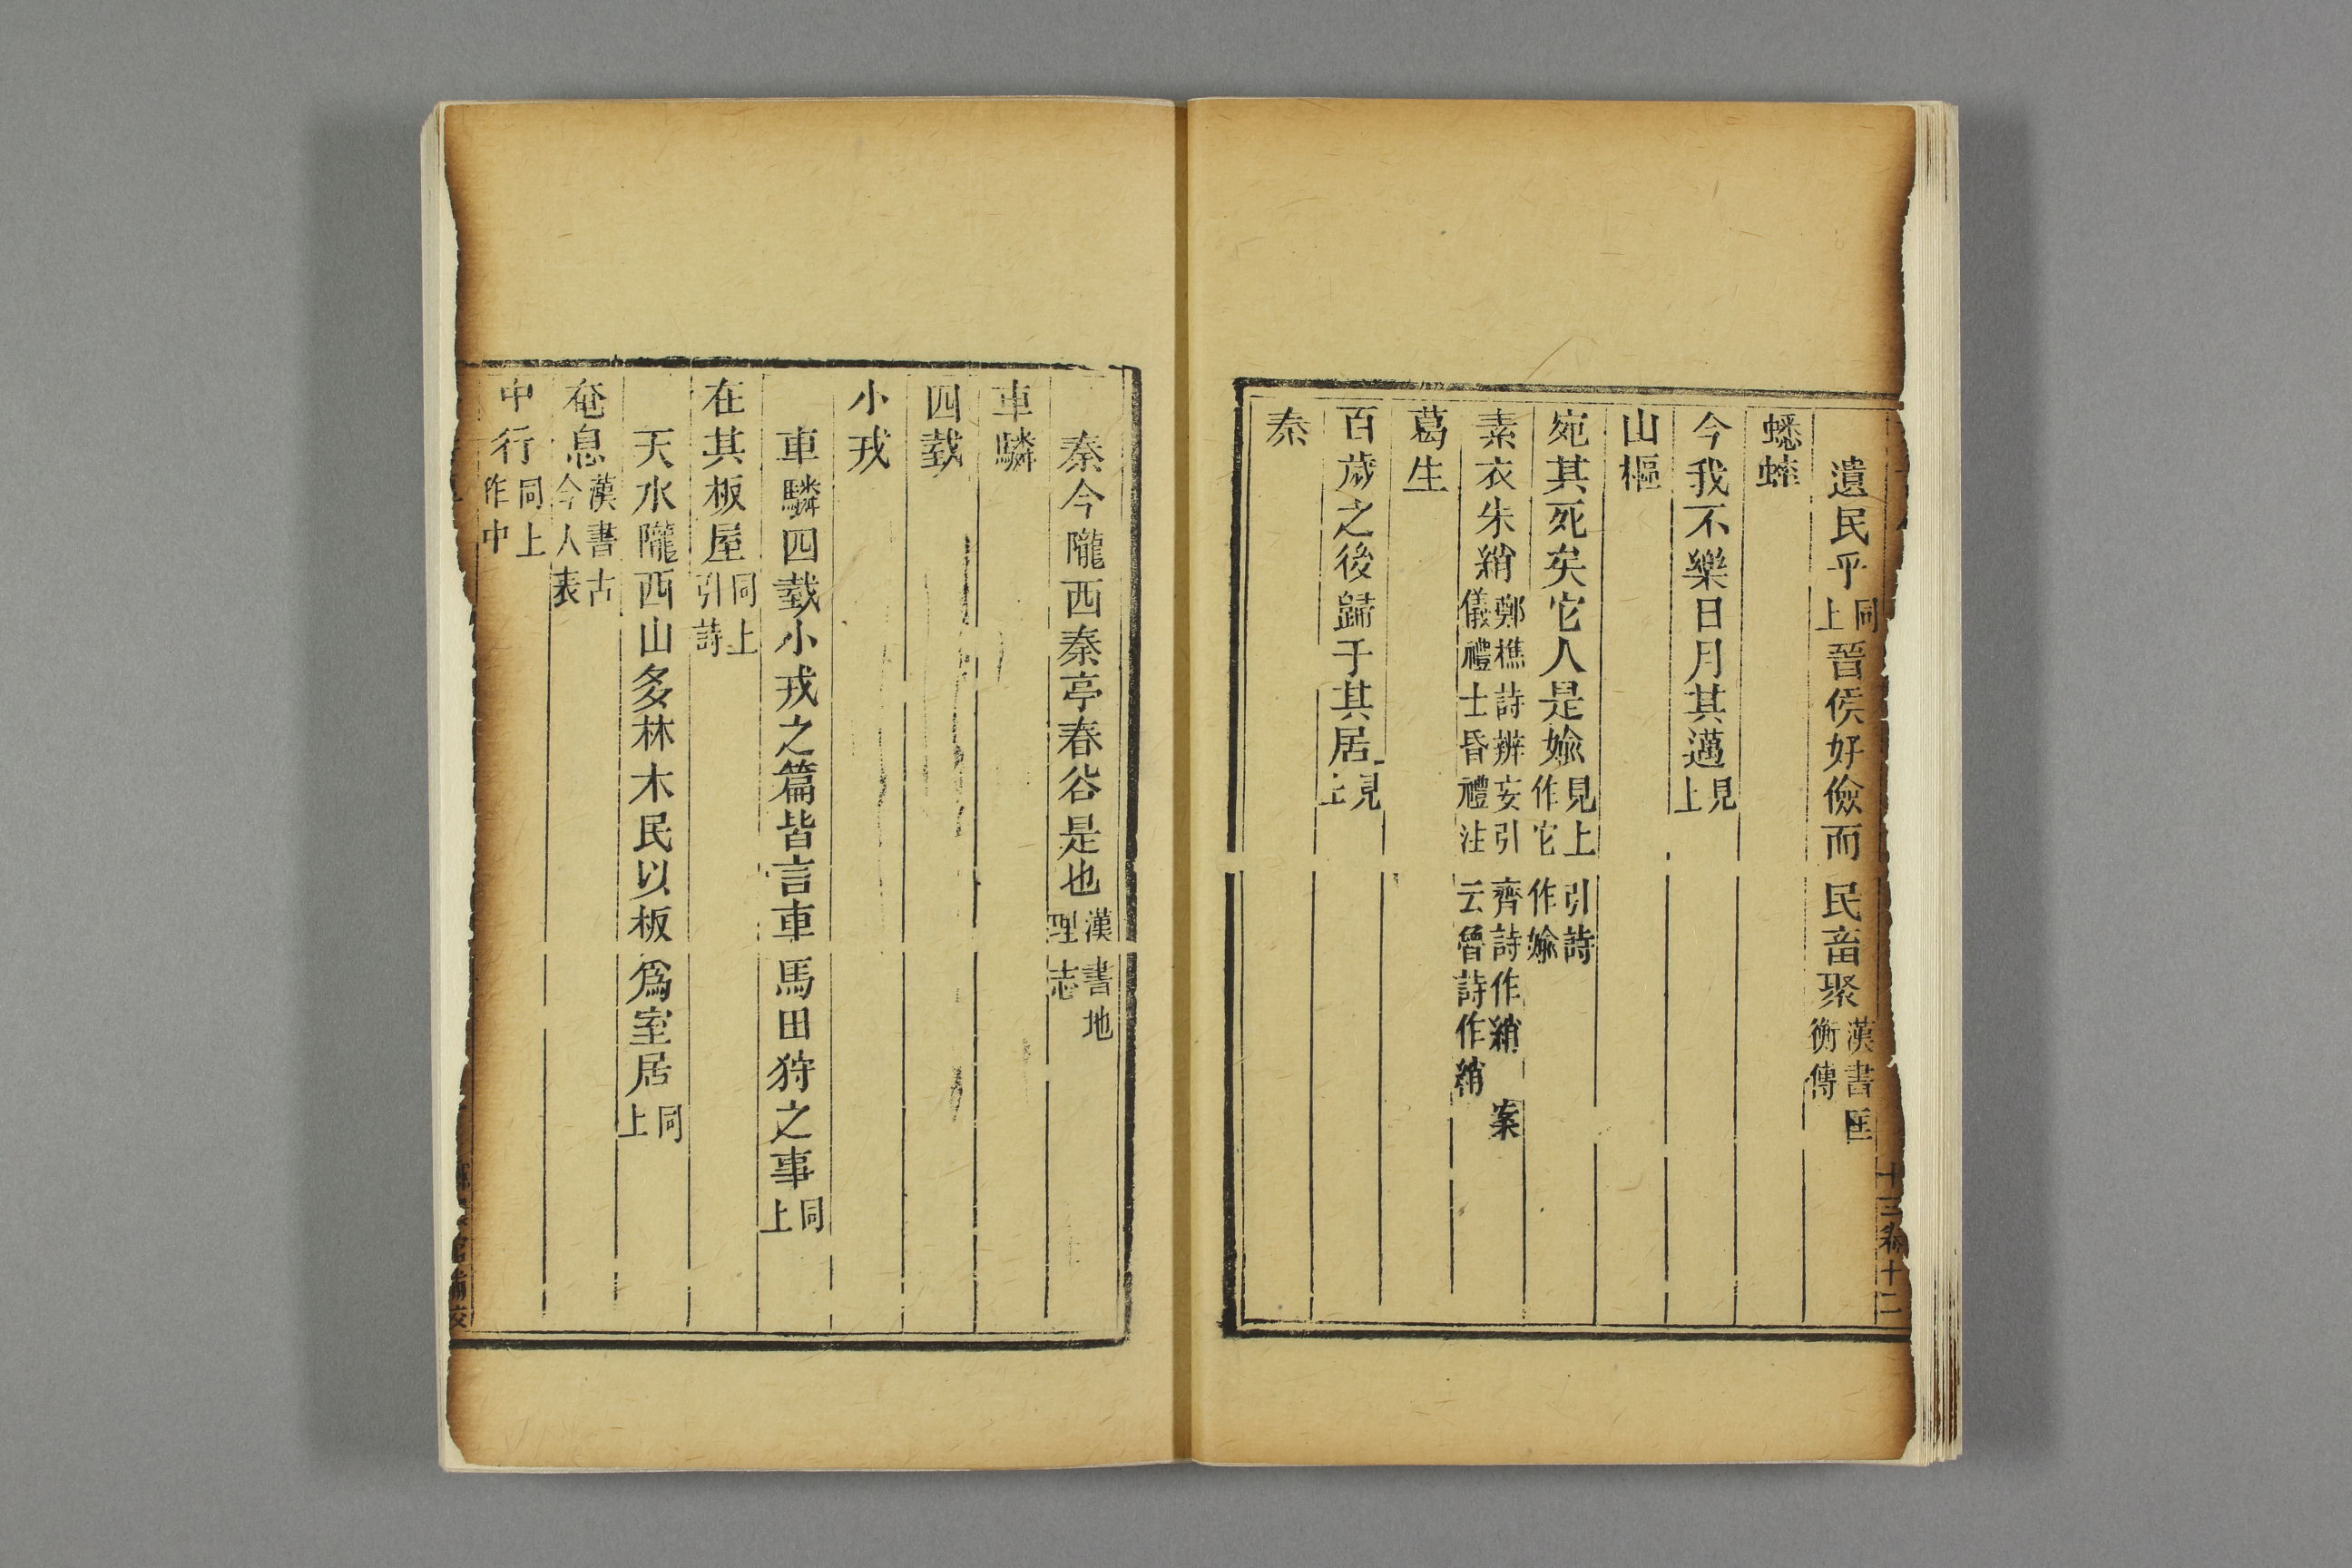 遺民乎同上晉侯好儉而民畜聚漢書匡衡傳
蟋蟀
今我不樂日月其邁見上
山樞
宛其死矣它人是媮見上引詩作它作媮
素衣朱綃鄭樵詩辨妄引齊詩作綃案儀禮士昏禮注云魯詩作綃
葛生
百歲之後歸于其居見上
秦
十三卷十二
秦今隴西秦亭春谷是也漢書地理志
車驎
四䥫
小戎
車驎四䥫小戎之篇皆言車馬田狩之事同上
在其板屋同上引詩
天水隴西山多林木民以板爲室居同上
奄息漢書古今人表
中行同上作中